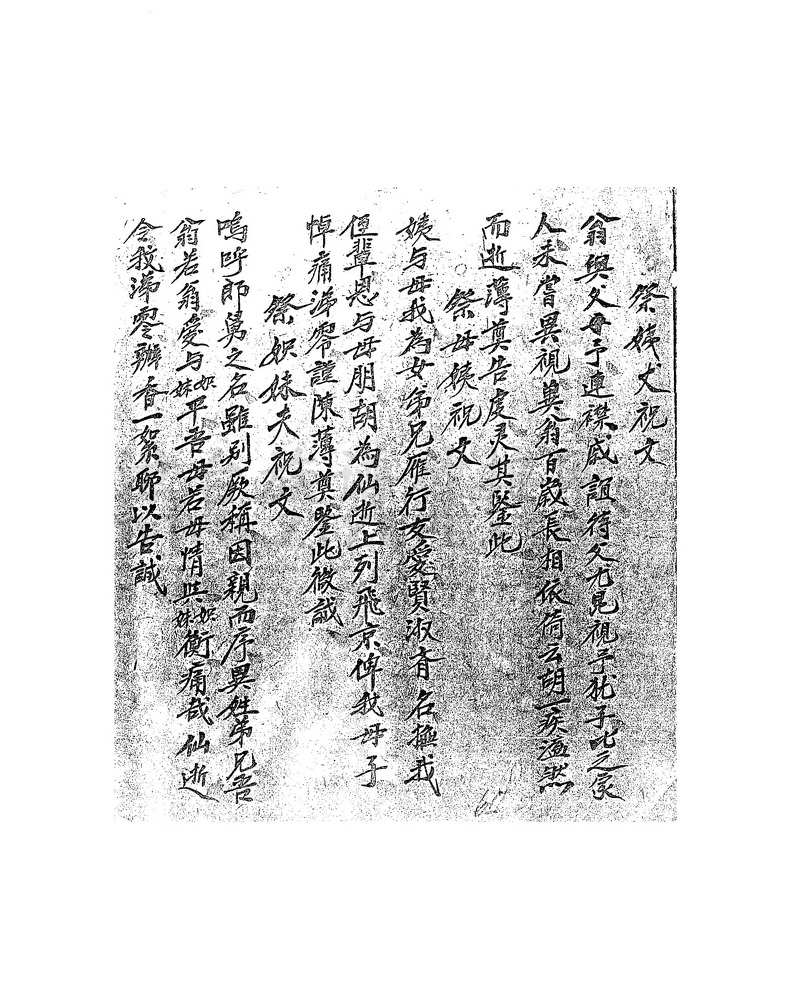 祭姨丈祝文
翁與父母予連襟戚誼待父尤昆視予犹子比之家
人未嘗異視奠翁百歲長相依倚云胡一疾溘然
而逝薄奠告虔灵其鑒此
祭母姨祝文
姨与母我為女弟兄雁行友愛賢淑斉名撫我
侄輩恩与母朋胡為仙逝上列飛京俾我母子
悼痛涕零謹陳薄奠鑒此微誠
祭姐妹夫祝文
嗚呼郎舅之名雖別厥稱因親而序異姓弟兄吾
翁若翁愛与姐妹平吾母若母情與姐妹衡痛哉仙逝
令我涕零瓣香一絮聊以告誠